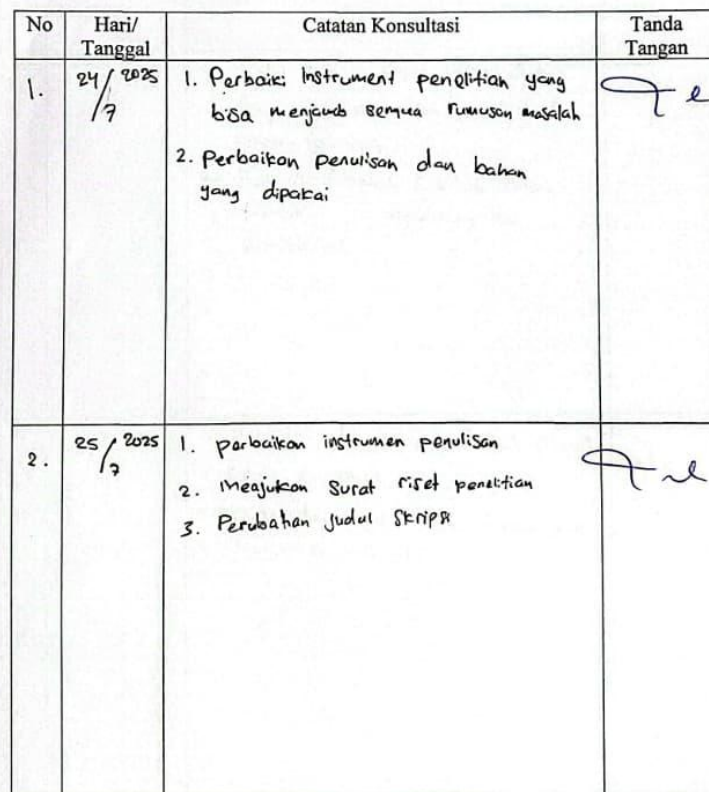 No Hari/ Tanggal Catatan Konsultasi Tanda Tangan
1. 24/7 2025 1. Perbaiki Instrument penelitian yang
bisa menjawab semua rumusan masalah
2. Perbaikan penulisan dan bahan
yang dipakai
2. 25/7 2025 1. perbaikan instrumen penulisan
2. Meajukan Surat riset penelitian
3. Perubahan judul Skripsi